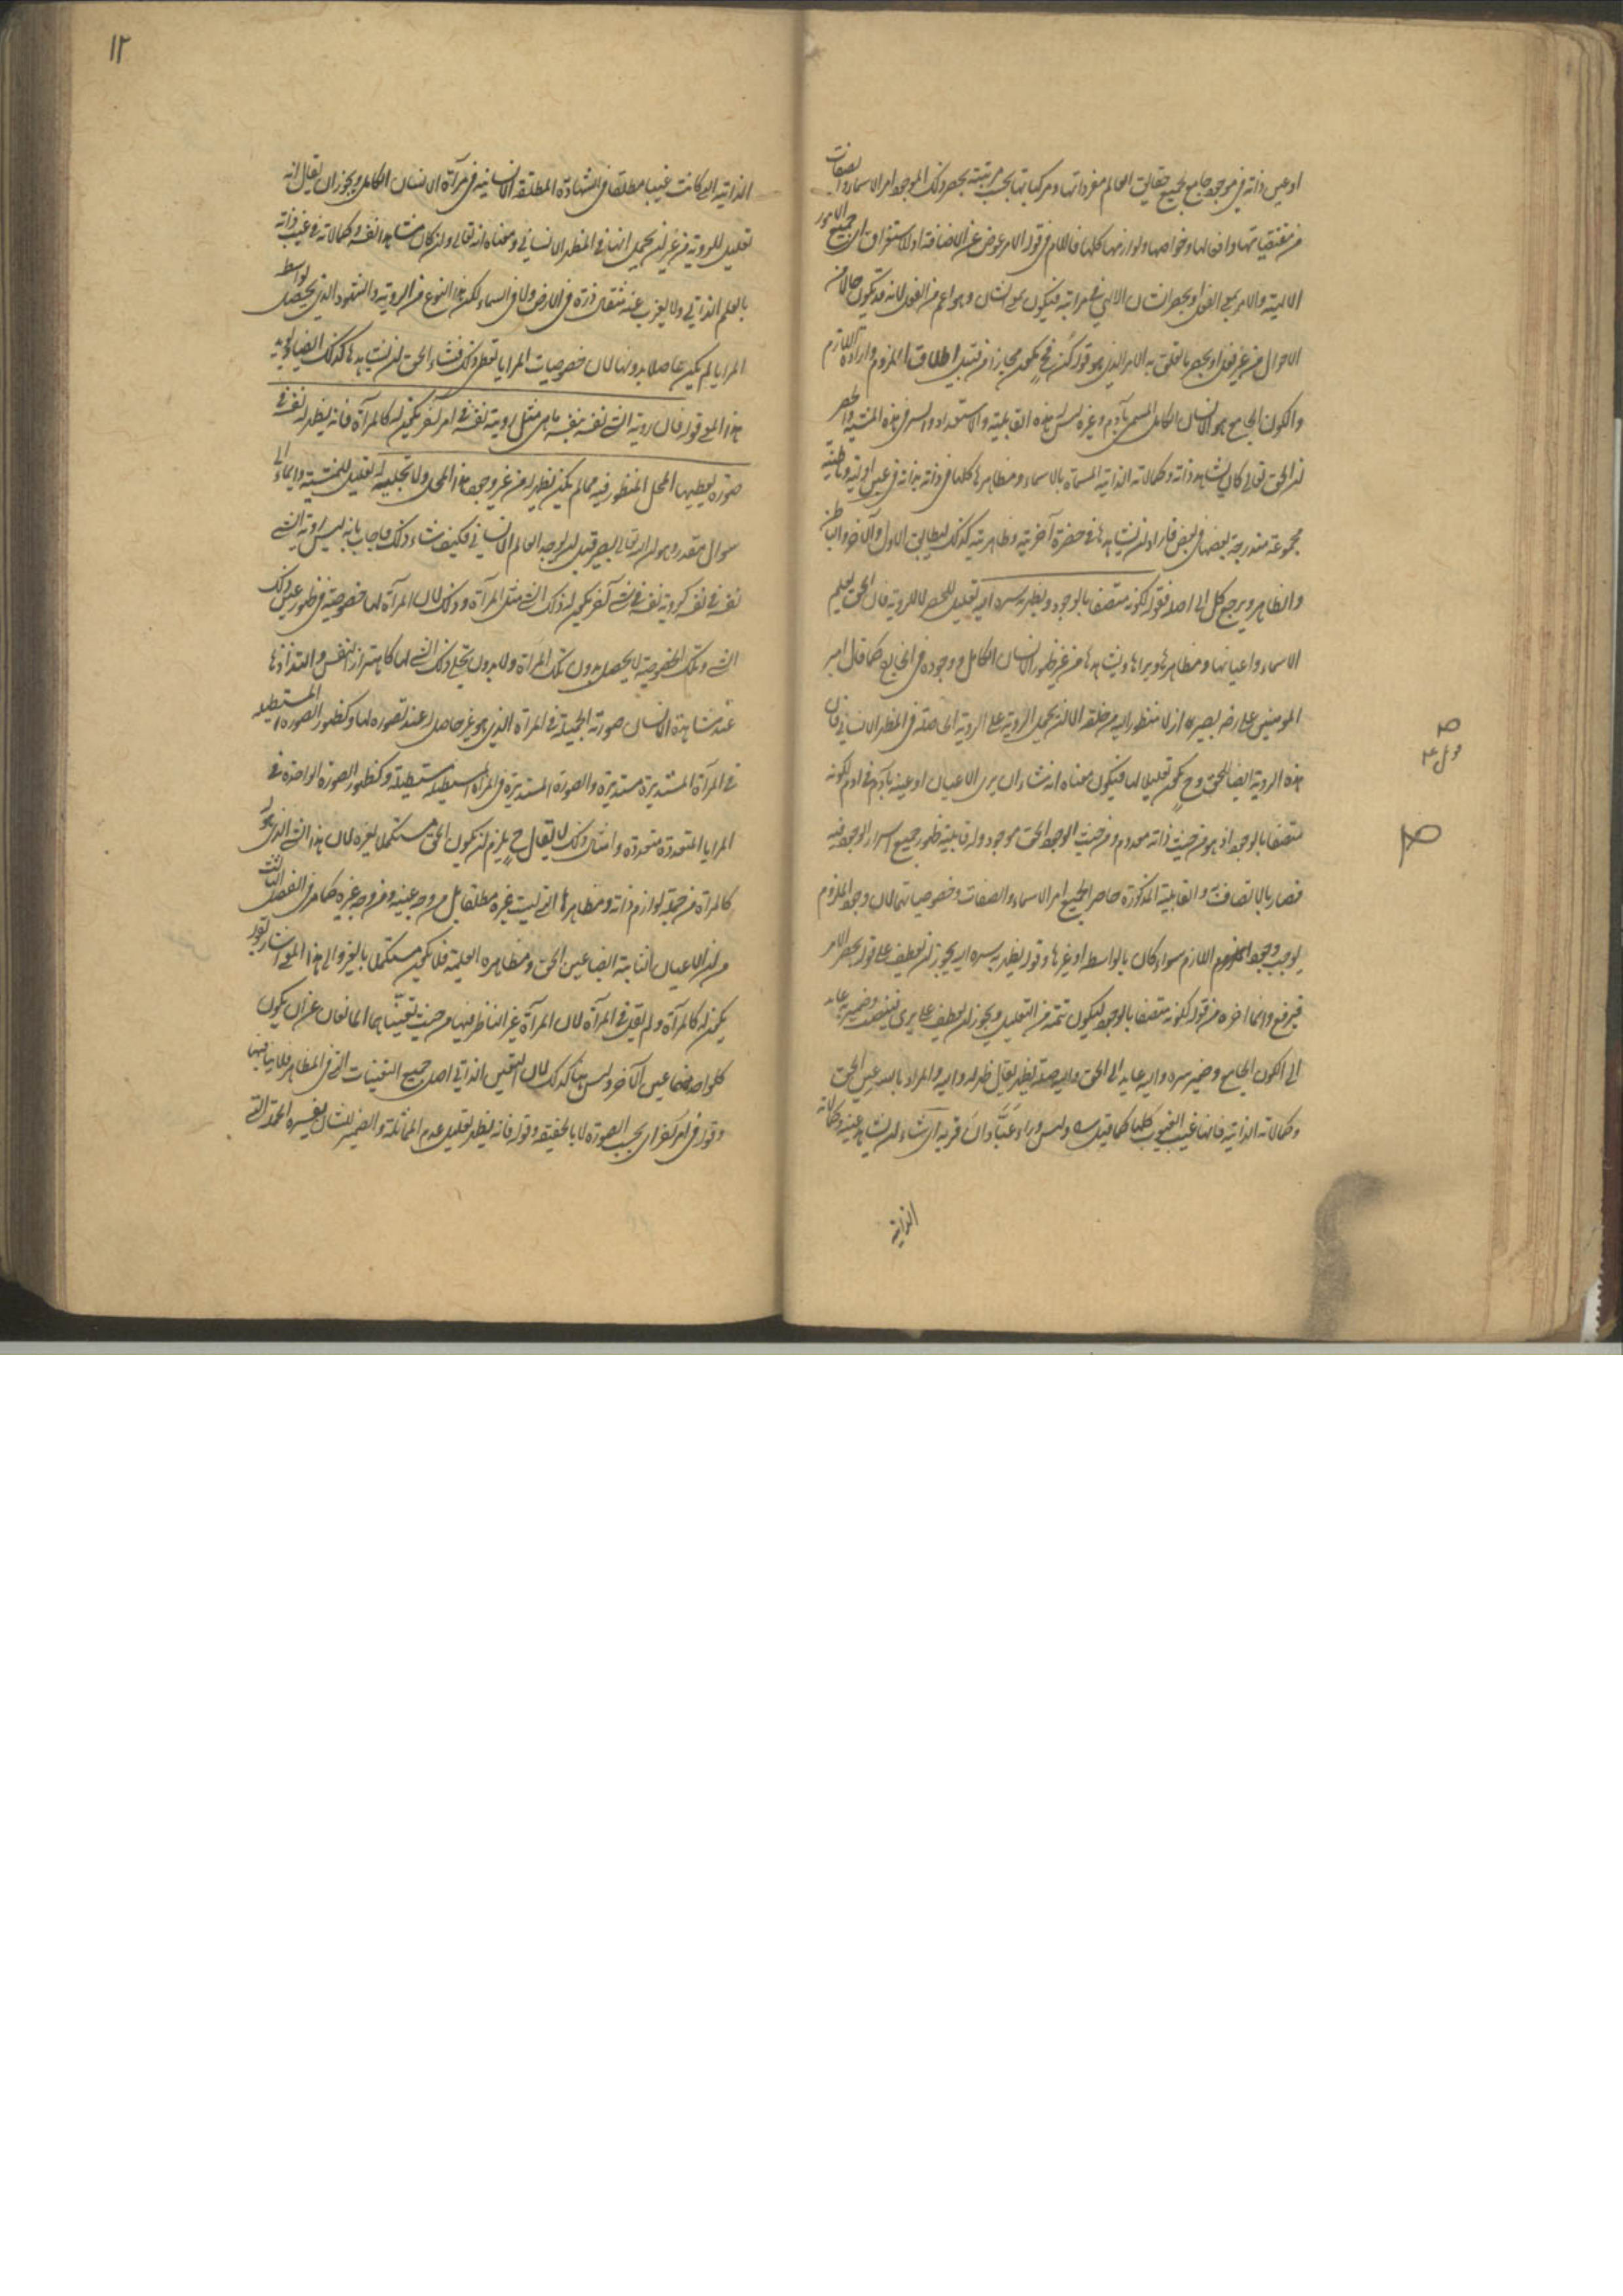 او عين ذاته في موجود جامع لجميع حقايق العالم مفرداتها ومركباتها بحسب مرتبته يحصر ذلك الموجود امر الاسماء والصفات
من مقتضياتها وافعالها وخواصها ولوازمها كلها فاللام في قوله الامر عوض عن الاضافة او للاستغراق اى جميع الامور
الالهية والامر بمعنى الفعل او يحصر الشان الالهي في مراتبه فيكون بمعنى الشان وهو اعم من الفعل لانه قد يكون حالا من
الاحوال من غير فعل او يحصر ما تعلق به الامر الذي هو قوله كن فح يكون مجازا من قبيل اطلاق الملزوم وارادة اللازم
والكون الجامع هو الانسان الكامل المسمى بآدم وغيره ليس له هذه القابلية والاستعداد والسر في هذه المشية والحصر
ان الحق تعالى كان يشاهد ذاته وكمالاته الذاتية المسماة بالاسماء ومظاهرها كلها في ذاته بذاته في عين اوليته وباطنيته
مجموعة مندرجة بعضها في بعض فاراد ان يشاهدها في حضرة آخريته وظاهريته كذلك ليطابق الاول والآخر والباطن
والظاهر ويرجع كل الى اصله فقوله لكونه متصفا بالوجود ويظهر به سره اليه تعليل للحصر لا للرؤية فان الحق يعلم
الاسماء واعيانها ومظاهرها ويراها ويشاهدها من غير ظهور الانسان الكامل ووجوده في الخارج كما قال امير
المومنين على رضه بصير اذ لا منظور اليه من خلقه الا ان يحمل الرؤية على الرؤية الحاصلة في المظهر الانساني فان
هذه الرؤية ايضا للحق وح يكون تعليلا لها فيكون معناه انه شاء ان يرى الاعيان او عينه بآدم في آدم لكونه
متصفا بالوجود اذ هو من حيث ذاته معدوم ومن حيث الوجود الحق موجود وله قابلية ظهور جميع اسرار الوجود فيه
فصار بالاتصاف والقابلية المذكورة حاصر الجميع امر الاسماء والصفات وخصوصياتها لان وجود الملزوم
يوجب وجود اللازم سواء كان بالواسطة او غيرها وقوله يظهر به سره اليه يجوز ان يعطف على قوله يحصر الامر
فيرفع وانما اخره من قوله لكونه متصفا بالوجود ليكون تتمة من التعليل ويجوز ان يعطف على يرى فينصب وضمير به عايد
الى الكون الجامع وضمير سره واليه عايد الى الحق واليه صلة يظهر يقال ظهر له واليه والمراد بالسر عين الحق
وكمالاته الذاتية فانها غيب الغيوب كلها كما قيل وليس وراء عبادان قرية اى شاء ان يشاهد عينه وكمالاته
الذاتية
١٢
الذاتية التي كانت غيبا مطلقا في الشهادة المطلقة الانسانية في مرآة الانسان الكامل ويجوز ان يقال انه
تعليل للرؤية من غير ان يحمل انها في المظهر الانساني ومعناه انه تعالى وان كان مشاهدا نفسه وكمالاته في غيب ذاته
بالعلم الذاتي ولا يعزب عنه مثقال ذرة في الارض ولا في السماء لكن هذا النوع من الرؤية والشهود الذي يحصل بواسطة
المرايا لم يكن حاصلا بدونها لان خصوصيات المرايا تعطي ذلك فشاء الحق ان يشاهدها كذلك ايضا
هذا المعنى قوله فان رؤية الشئ نفسه بنفسه ما هى مثل رؤية نفسه في امر آخر يكون له كالمرآة فانه يظهر له نفسه في
صورة يعطيها المحل المنظور فيه مما لم يكن يظهر له من غير وجود هذا المحل ولا تجليه له تعليل للمشية وايماء الى
سوال مقدر وهو ان الله تعالى بصير قبل ان يوجد العالم الانساني فكيف شاء ذلك فاجاب بانه ليس رؤية الشئ
نفسه في نفسه كرؤية نفسه في شئ آخر يكون له ذلك الشئ مثل المرآة وذلك لان المرآة لها خصوصية في ظهور عين ذلك
الشئ وتلك الخصوصية لا يحصل بدون تلك المرآة ولا بدون تجلى ذلك الشئ لها كاهتزاز النفس والتذاذها
عند مشاهدة الانسان صورته الجميلة في المرآة الذي هو غير حاصل له عند تصوره لها وكظهور الصورة المستطيلة
في المرآة المستديرة مستديرة والصورة المستديرة في المرآة المستطيلة مستطيلة وكظهور الصورة الواحدة في
المرايا المتعددة متعددة وامثال ذلك لا يقال ح يلزم ان يكون الحق مستكملا بغيره لان هذا الشئ الذي هو له
كالمرآة من جملة لوازم ذاته ومظاهرها التي ليست غيره مطلقا بل من وجه عينه ومن وجه غيره كما مر في الفصل الثالث
من ان الاعيان الثابتة ايضا عين الحق ومظاهره العلمية فلا يكون مستكملا بالغير والى هذا المعنى اشار بقوله
يكون له كالمرآة ولم يقل في المرآة لان المرآة غير الناظر فيها من حيث تعينهما المانعان عن ان يكون
كل واحد منهما عين الآخر وليس هنا كذلك لان التعين الذاتي اصل جميع التعينات التي في المظاهر فلا ينافيها
وقوله في امر آخر اى بحسب الصورة لا بالحقيقة وقوله فانه يظهر تعليل عدم المماثلة والضمير للشان يفسره الجملة التي